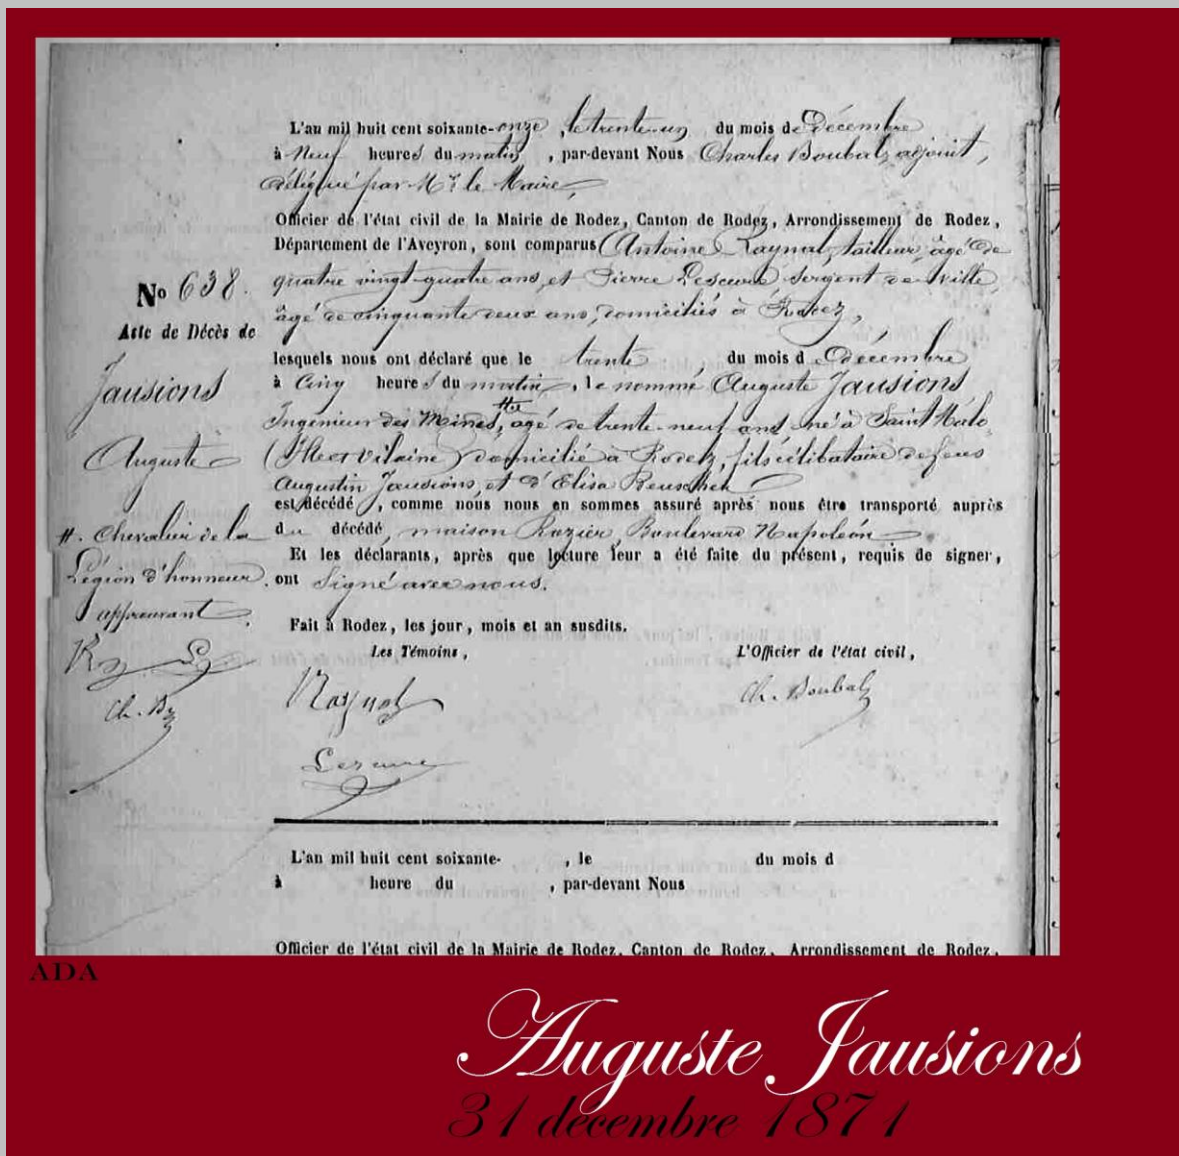 L'an mil huit cent soixante-onze, le trente-un du mois de Décembre
à Neuf heures du matin, par-devant Nous Charles Boubal, adjoint,
délégué par Mr. le Maire,
Officier de l'état civil de la Mairie de Rodez, Canton de Rodez, Arrondissement de Rodez,
Département de l'Aveyron, sont comparus Antoine Raynal, tailleur, âgé de
quatre vingt-quatre ans, et Pierre Lescure sergent de ville,
âgé de cinquante deux ans, domiciliés à Rodez,
No 638.
Acte de Décès de
Jausions
Auguste
#. Chevalier de la
Légion d'honneur.
approuvant
Ch. B
lesquels nous ont déclaré que le trente, du mois d Décembre
à Cinq heures du matin, le nommé Auguste Jausions
Ingénieur des Mines, # âgé de trente-neuf ans né à Saint Malo
(Ille et Vilaine) domicilié à Rodez, fils célibataire de feus
Augustin Jausions, et d'Elisa
est décédé, comme nous nous en sommes assuré après nous être transporté auprès
du décédé, maison Rozier, Boulevard Napoléon
Et les déclarants, après que lecture leur a été faite du présent, requis de signer,
ont signé avec nous.
Fait à Rodez, les jour, mois et an susdits.
Les Témoins, L'Officier de l'état civil,
Raynal Ch. Boubal
Lescure
L'an mil huit cent soixante- , le du mois d
à heure du , par-devant Nous
Officier de l'état civil de la Mairie de Rodez, Canton de Rodez, Arrondissement de Rodez,
ADA
Auguste Jausions
31 décembre 1871